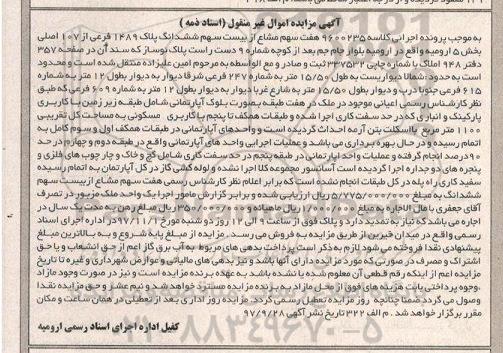 آگهی مزایده اموال غیر منقول (اسناد ذمه)
به موجب پرونده اجرائی کلاسه ۹۶۰۰۲۳۵ هفت سهم مشاع از بیست سهم ششدانگ پلاک ۱۴۸۹ فرعی از ۱۰۷ اصلی
بخش ۵ ارومیه واقع در ارومیه بلوار جام جم بعد از کوچه شماره ۹ دست راست پلاک نوساز که سند آن در صفحه ۳۵۷
دفتر ۹۴۸ املاک با شماره چاپی ۳۳۷۵۳۲ ثبت و صادر و مع الواسطه به مرحوم امین علیزاده منتقل شده است و محدود
است به حدود: شمالا دیواریست به طول ۱۵/۵۰ متر به شماره ۲۴۷ فرعی شرقا دیوار به دیوار بطول ۱۲ متر به شماره
۶۱۵ فرعی جنوبا درب و دیوار بطول ۱۵/۵۰ متر به شارع غربا دیوار به دیوار بطول ۱۲ متر به شماره ۶۰۹ فرعی که طبق
نظر کارشناس رسمی اعیانی موجود در ملک در هفت طبقه بصورت بلوک آپارتمانی شامل طبقه زیر زمین با کاربری
پارکینگ و انباری که در حد سفت کاری اجرا شده و طبقات همکف تا پنجم با کاربری مسکونی به مساحت کل تقریبی
۱۱۰۰ متر مربع بااسکلت بتن آرمه احداث گردیده است و واحدهای آپارتمانی در طبقات همکف اول و سوم کامل به
اتمام رسیده و در حال بهره برداری می باشد و عملیات اجرایی واحد های آپارتمانی واقع در طبقه دوم و چهارم در حد
۹۰درصد انجام گرفته و عملیات واحد اپارتمانی در طبقه پنجم در حد سفت کاری شامل گچ و خاک و چار چوب های فلزی و
پنجره های دو جداره اجرا گردیده است آسانسور مجموعه کلا اجرا نشده و لوله کشی گاز در کل آپارتمان به اتمام رسیده
سفید کاری راه پله در کل طبقات انجام نشده است که برابر اعلام نظر کارشناس رسمی هفت سهم مشاع از بیست سهم
ششدانگ به مبلغ ۵/۷۷۵/۰۰۰/۰۰۰ ریال ارزیابی شده و برابر گزارش مامور اجرا یک واحد ملک مزبور در تصرف
آقای جعفری با مال الاجاره به مبلغ ۱/۰۰۰/۰۰۰ ریال ماهیانه و ۳۵۰/۰۰۰/۰۰۰ ریال مبلغ رهن به مدت یک سال در
اجاره می باشدکه نیاز به تمدید دارد و پلاک فوق از ساعت ۹ الی ۱۲ روز دو شنبه مورخ ۹۷/۱۱/۱در اداره اجرای اسناد
رسمی واقع در میدان خیبرین از طریق مزایده به فروش می رسد. مزایده از مبلغ پایه شروع و به بالاترین مبلغ
پیشنهادی نقدا فروخته می شود لازم به ذکر است پرداخت بدهی های مربوط به آب برق گاز اعم از حق انشعاب و یا حق
اشتراک و مصرف در صورتی که مورد مزایده دارای آنها باشد و نیز بدهی های مالیاتی و عوارض شهرداری و غیره تا تاریخ
مزایده اعم از اینکه رقم قطعی آن معلوم شده یا نشده باشد به عهده برنده مزایده است و نیز در صورت وجود مازاد
،وجوه پرداختی بابت هزینه های فوق از محل مازاد به برنده مزایده مسترد خواهد شد و نیم عشر و حق مزایده نقدا
وصول می گردد ضمنا چنانچه روز مزایده تعطیل رسمی گردد، مزایده روز اداری بعد از تعطیلی در همان ساعت و مکان
مقرر برگزار خواهد شد. م الف ۳۲۲ تاریخ نشر آگهی ۹۷/۹/۲۸
کفیل اداره اجرای اسناد رسمی ارومیه
۰۲۱-۸۸۳۴۹۶۷۰-۵